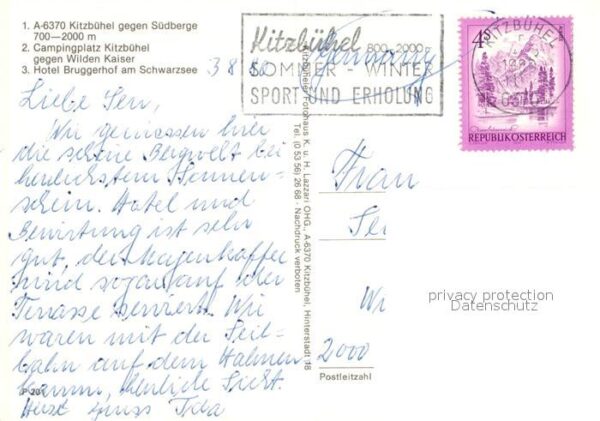 1. A-6370 Kitzbühel gegen Südberge
700—2000 m
2. Campingplatz Kitzbühel
gegen Wilden Kaiser
3. Hotel Bruggerhof am Schwarzsee
3 8
Kitzbühel 800-2000m
SOMMER - WINTER
SPORT UND ERHOLUNG
Germany
KITZBÜHEL
REPUBLIK ÖSTERREICH
Liebe
Wir geniessen hier
die schöne Bergwelt bei
herrlichstem Sonnen-
schein. Hotel und
Bewirtung ist sehr
gut, der Morgenkaffee
wird sogar auf der
Terrasse serviert. Wir
waren mit der Seil-
bahn auf dem Hahnen
kamm, herrliche Sicht.
Kitzbüheler Fotohaus K. u. H. Lazzari OHG., A-6370 Kitzbühel, Hinterstadt 18
Tel. (0 53 56) 26 68 · Nachdruck verboten
Frau
2000
Postleitzahl
privacy protection
Datenschutz